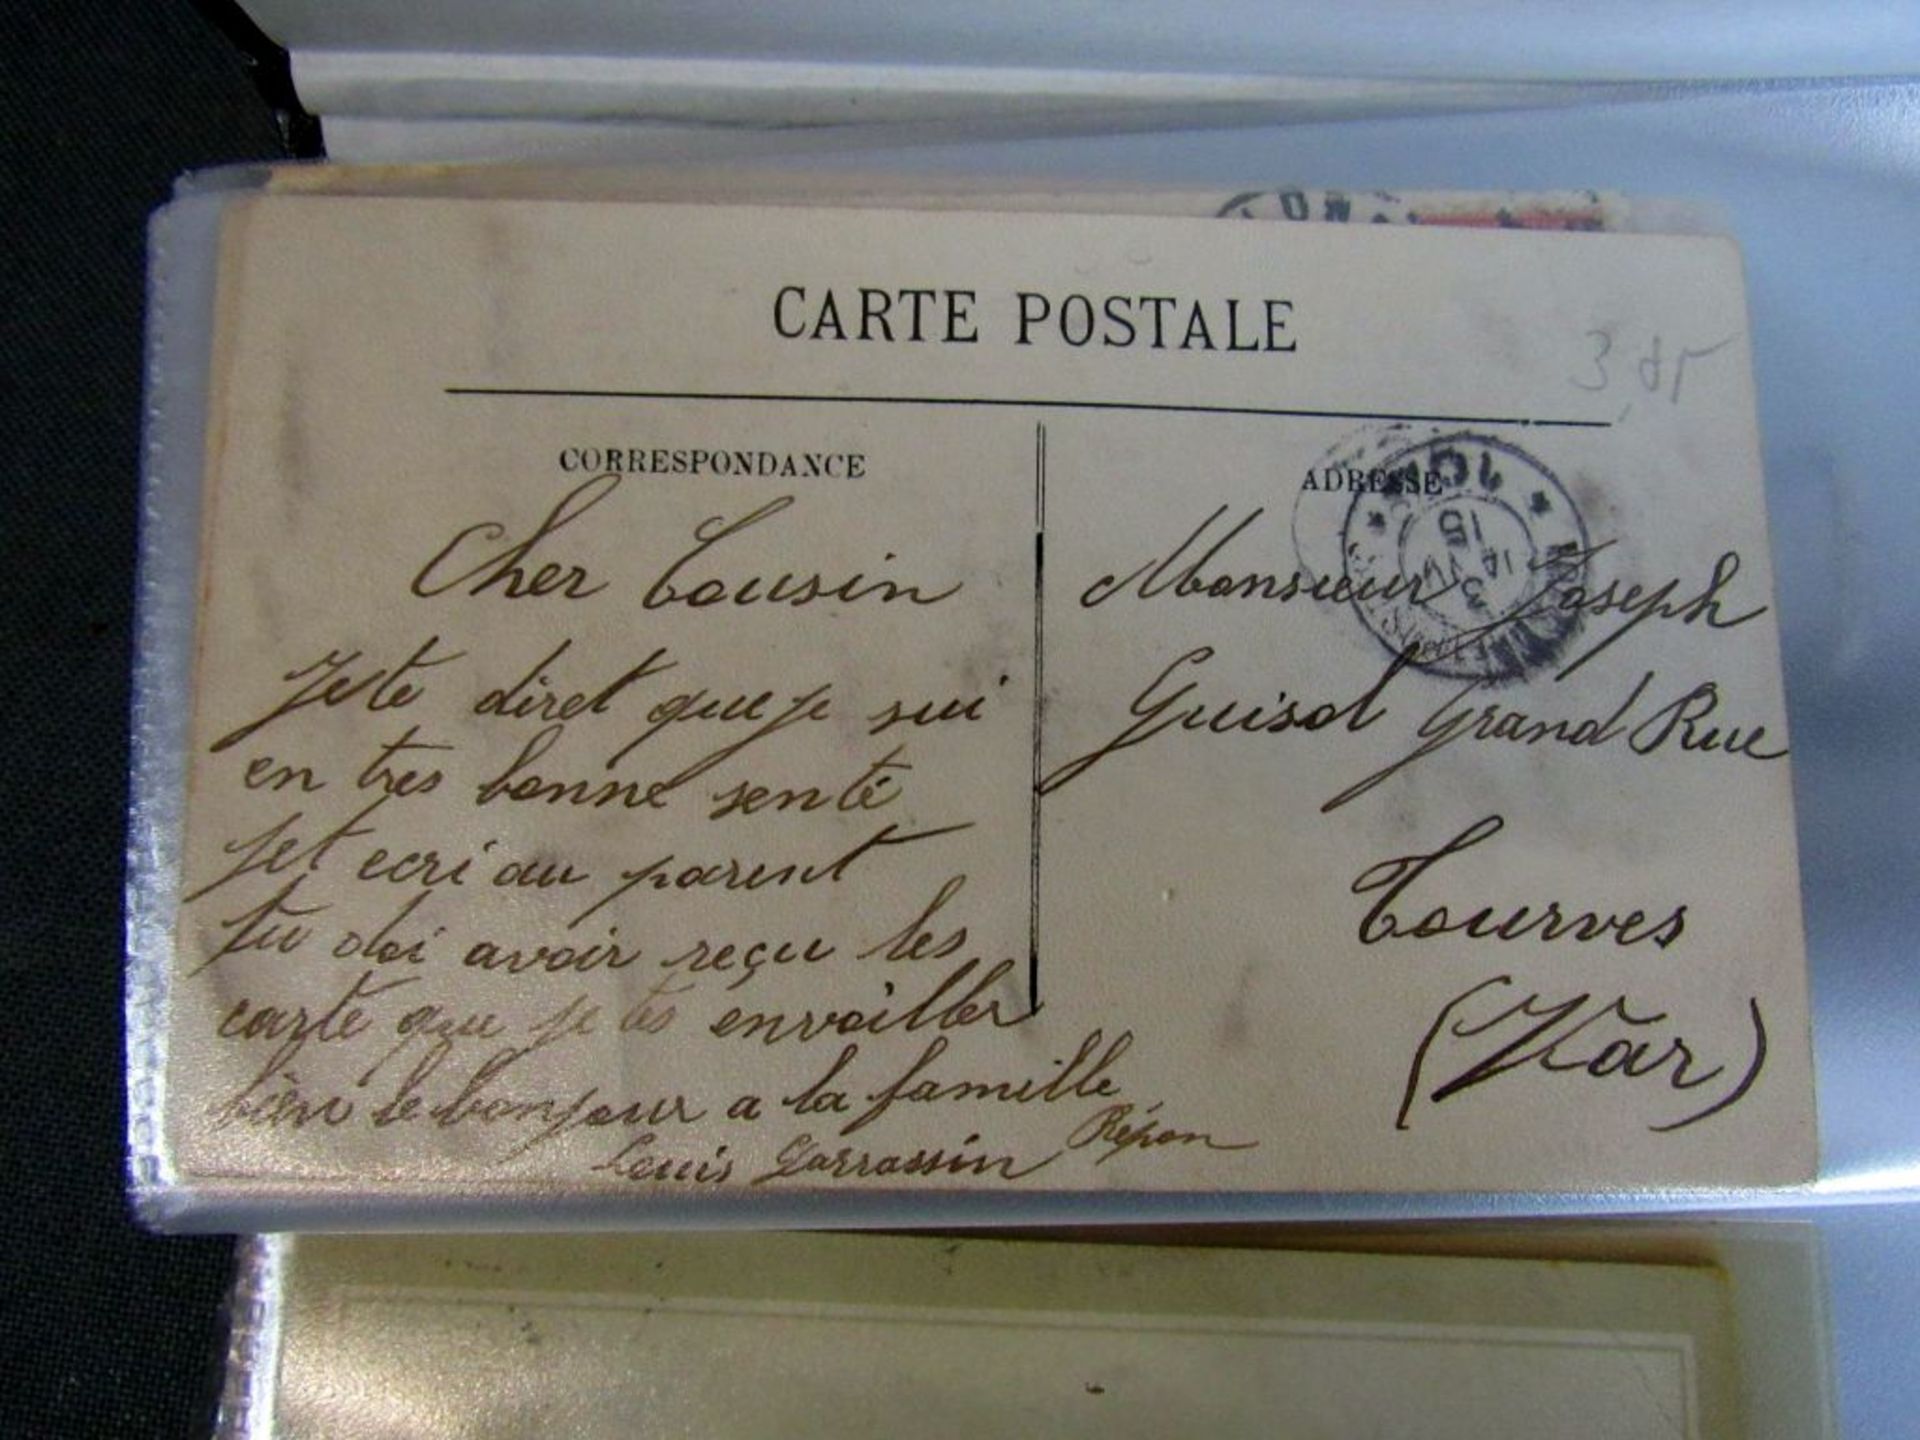 CARTE POSTALE
3,85
CORRESPONDANCE
ADRESSE
Cher Cousin
Je te diret que je sui
en tres bonne senté
jet ecri au parent
tu doi avoir reçu les
carte que je tes envoiller
bien le bonjour a la famille
Louis Garrassin Répon
Monsieur Joseph
Guisol Grand Rue
Tourves
(Var)